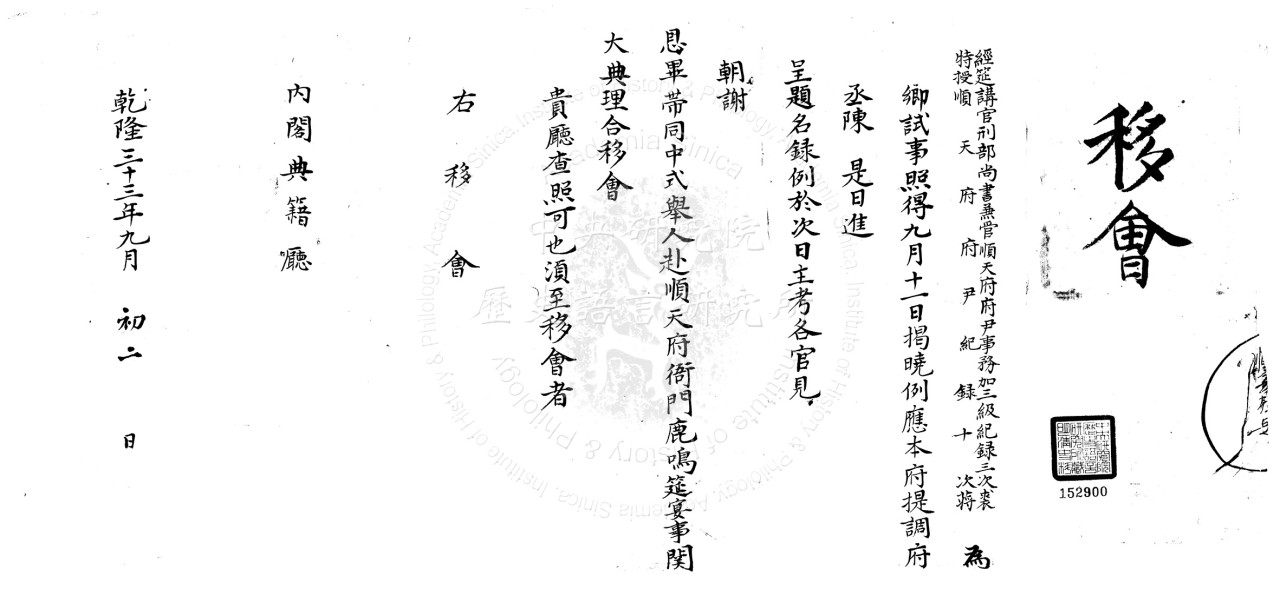 移會
經筵講官刑部尚書兼管順天府府尹事務加三級紀錄三次裘
特授順天府府尹紀錄十次蔣 為
鄉試事照得九月十一日揭曉例應本府提調府
丞陳 是日進
呈題名錄例於次日主考各官見
朝謝
恩畢帶同中式舉人赴順天府衙門鹿鳴筵宴事関
大典理合移會
貴廳查照可也須至移會者
右移會
內閣典籍廳
乾隆三十三年九月 初二 日
152900
中央研究院
歷史語言研究所
Academia Sinica
Institute of History & Philology, Academia Sinica